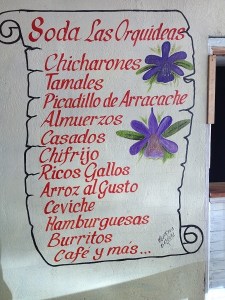 Soda Las Orquideas
Chicharones
Tamales
Picadillo de Arracache
Almuerzos
Casados
Chifrijo
Ricos Gallos
Arroz al Gusto
Ceviche
Hamburguesas
Burritos
Café y más...